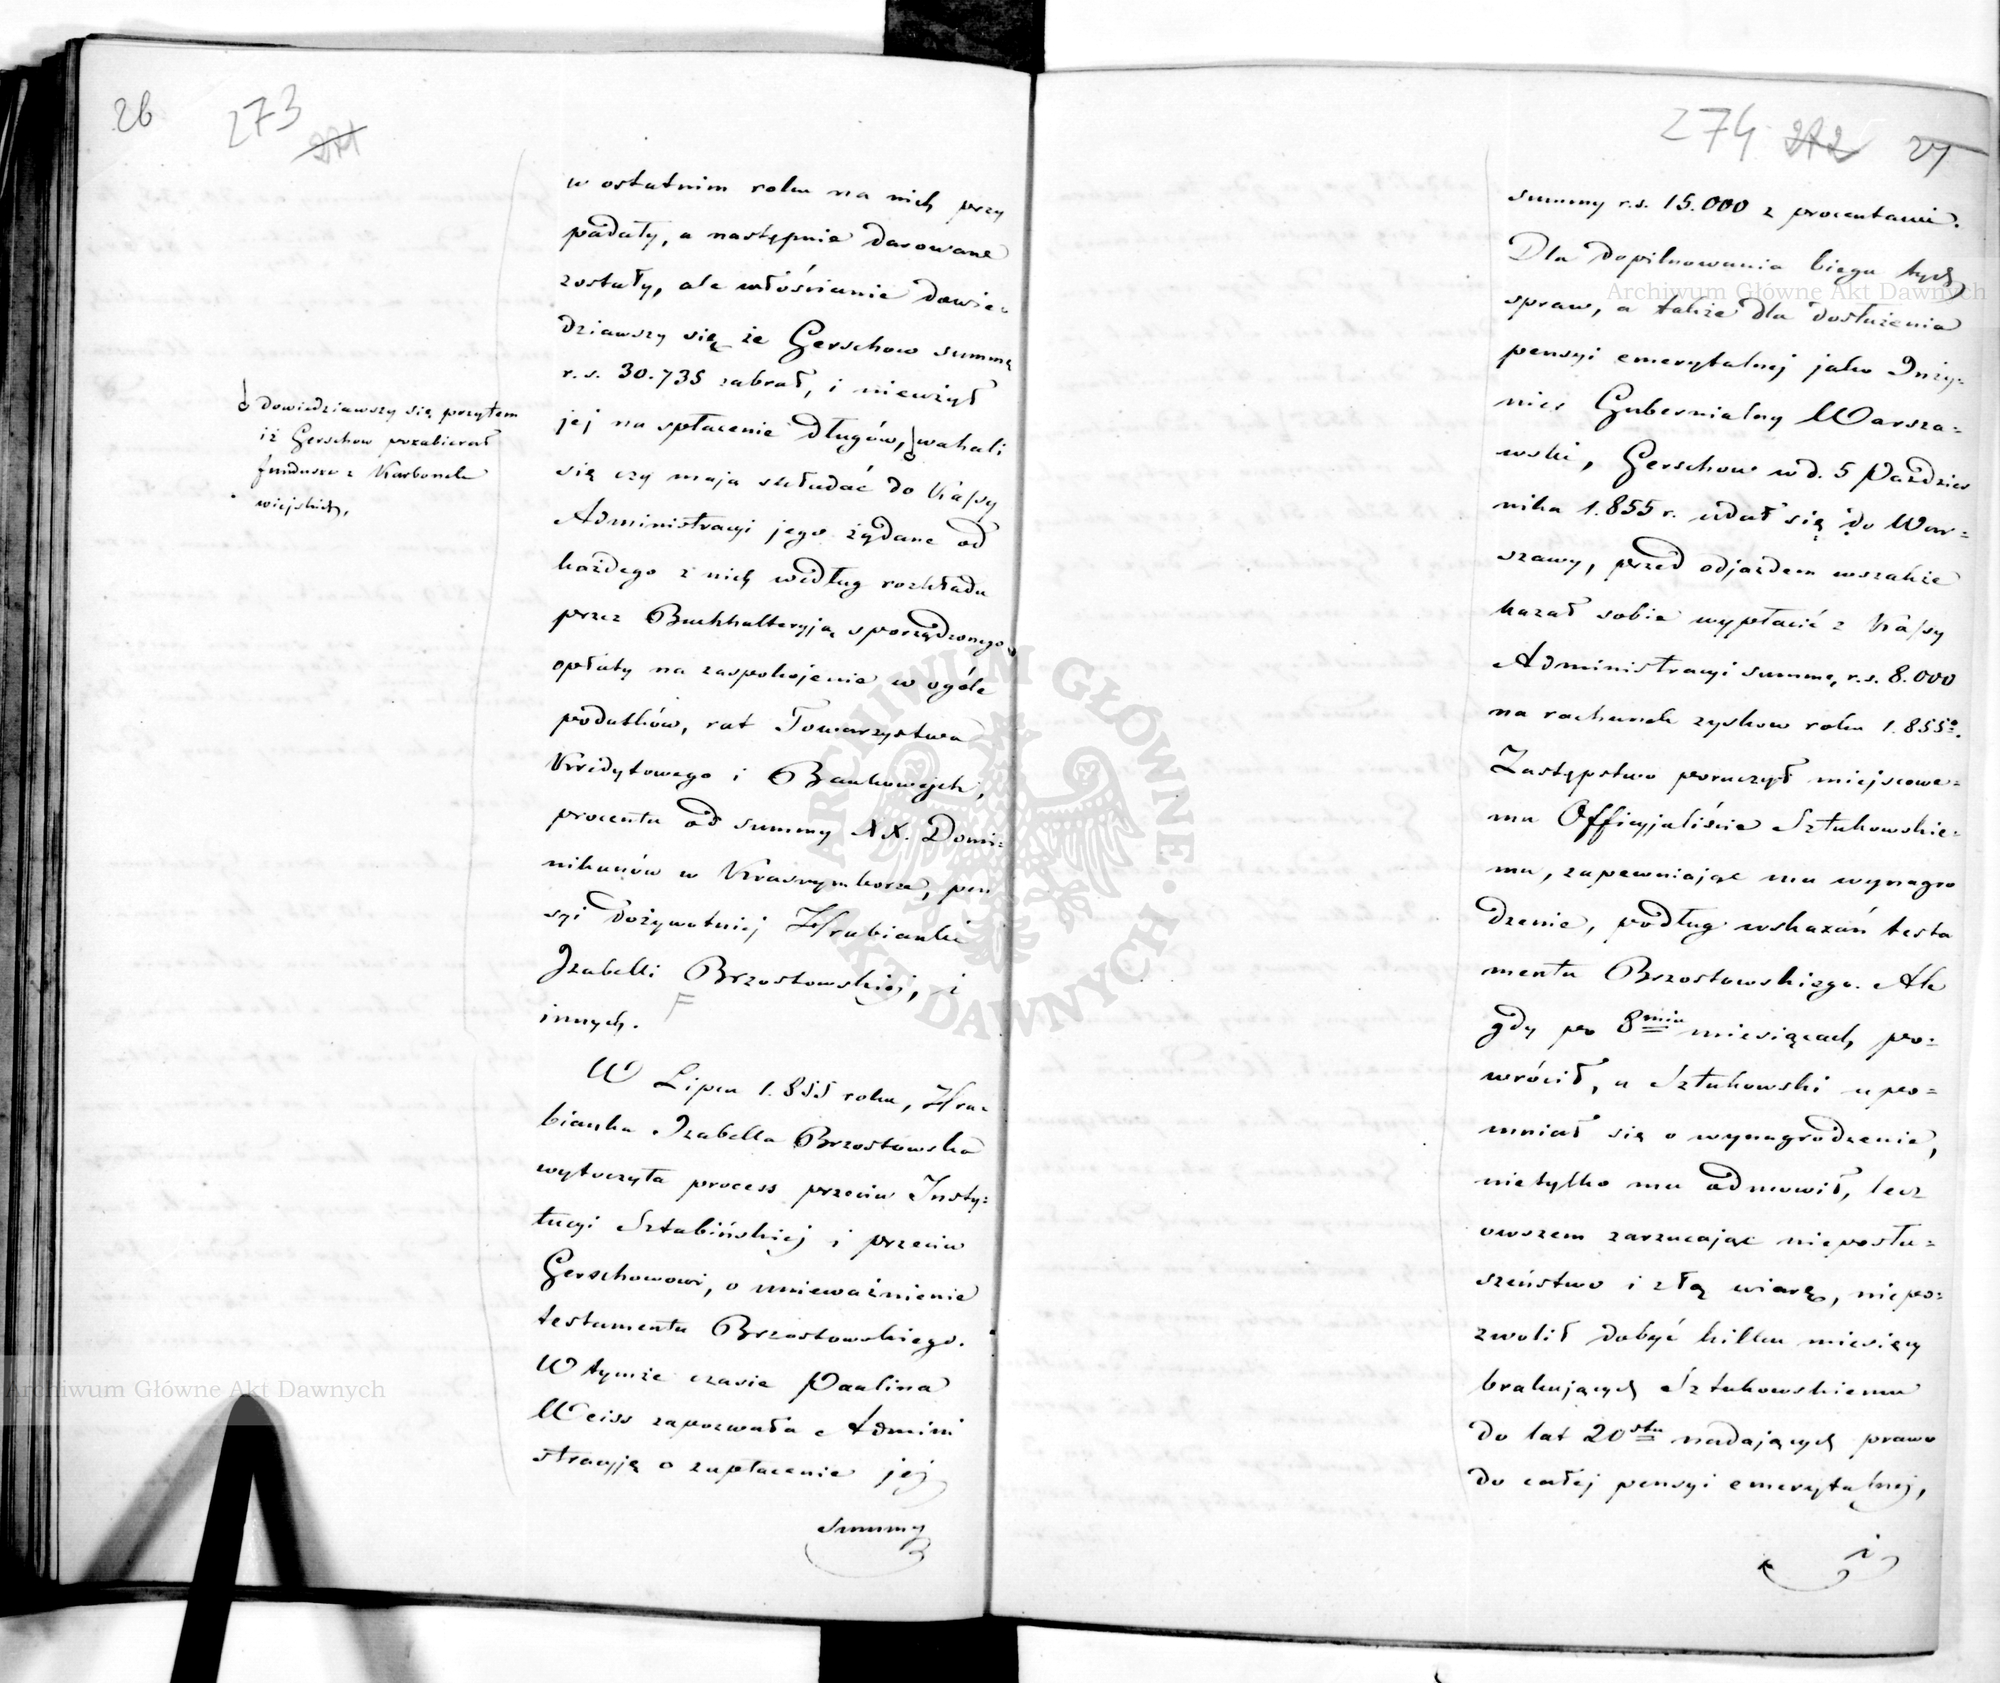 26
273
271
w ostatnim roku na nich przy
padały, a następnie darowane
zostały, ale włóścianie dowie=
dziawszy się że Gerschow summę
r. s. 30.735 zabrał, i nieużył
jej na spłacenie długów, wahali
się czy mają składać do Kassy
Administracyi jego żądane od
każdego z nich według rozkładu
przez Buchhalteryją sporządzonego,
opłaty na zaspokojenie w ogóle
podatków, rat Towarzystwa
Kredytowego i Bankowych,
procentu od summy XX. Domi=
nikanów w Krasnymborze, pen
syi dożywotniej Hrabianki
Izabelli Brzostowskiej, i
innych.
F
W Lipcu 1.855 roku, Hra=
bianka Izabella Brzostowska
wytoczyła process przeciw Insty=
tucyi Sztabińskiej i przeciw
Gerschowowi, o unieważnienie
testamentu Brzostowskiego.
W tymże czasie Paulina
Weiss zapozwała Admini
stracyję o zapłacenie jej
summy
dowiedziawszy się przytem
iż Gerschow pozabierał
fundusze z Karbonek
wiejskich,
274
272
27
summy r.s. 15.000 z procentami.
Dla dopilnowania biegu tych
spraw, a także dla dosłużenia
pensyi emerytalnej jako Inży=
nier Gubernialny Warsza=
wski, Gerschow w d. 5 Paździer
nika 1.855 r. udał się do War=
szawy, przed odjazdem wszakże
kazał sobie wypłacić z Kassy
Administracyi summę r.s. 8.000
na rachunek zysków roku 1.855o.
Zastępstwo poruczył miejscowe=
mu Officyjaliście Sztukowskie=
mu, zapewniając mu wynagro
dzenie, podług wskazań testa
mentu Brzostowskiego. Ale
gdy po 8miu miesiącach, po=
wrócił, a Sztukowski upo=
mniał się o wynagrodzenie,
nietylko mu odmowił, lecz
owszem zarzucając nieposłu=
szeństwo i złą wiarę, niepo=
zwolił dobyć kilku miesięcy
brakujących Sztukowskiemu
do lat 20stu nadających prawo
do całej pensyi emerytalnej,
i
Archiwum Główne Akt Dawnych
Archiwum Główne Akt Dawnych
ARCHIWUM GŁÓWNE · AKT DAWNYCH ·